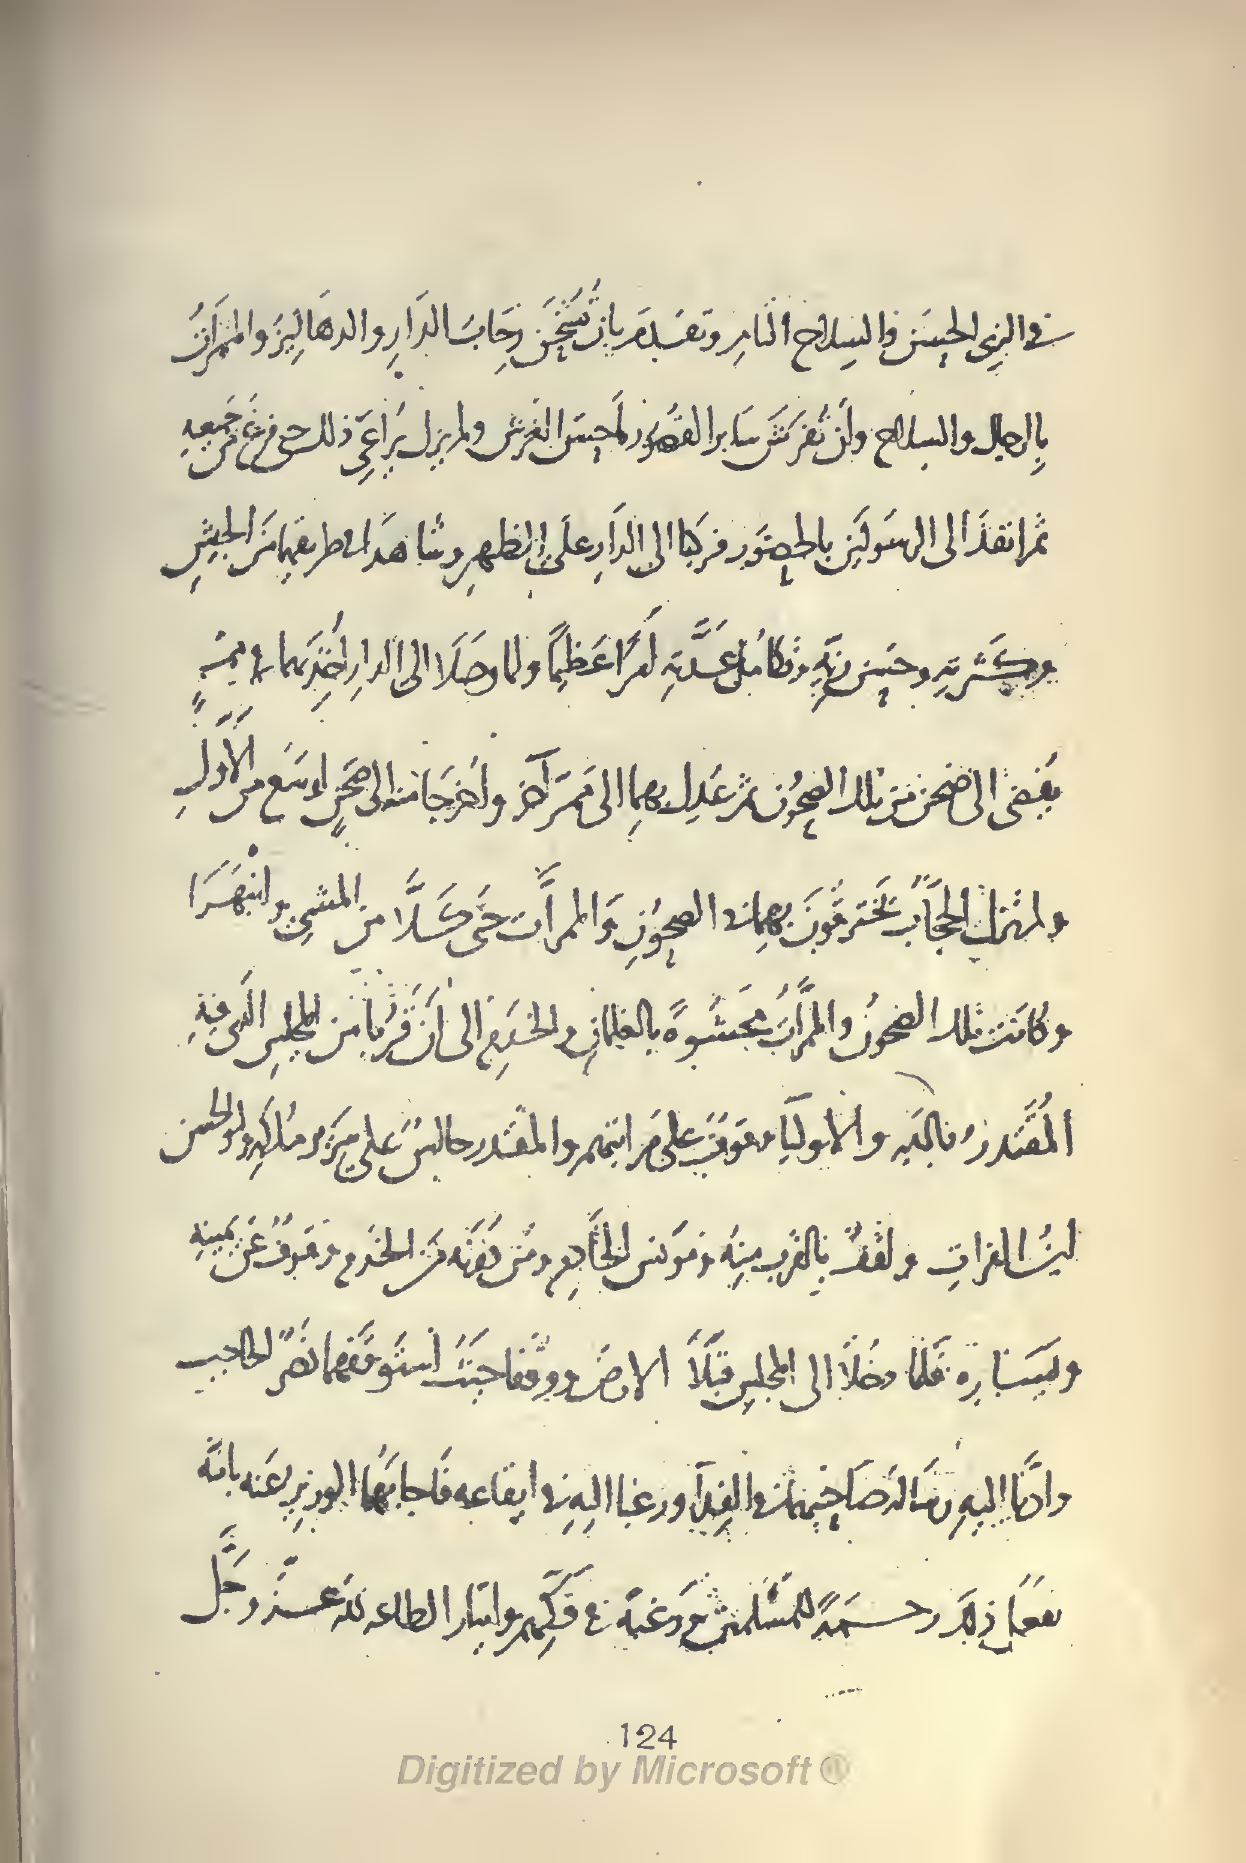 في الزي الحسن والسلاح التام وتقدم بان تشحن رحاب الدار والدهاليز والممرات
بالرجال والسلاح وان تفرش ساير القصور باحسن الفرش ولم يزل يراعي ذلك حتى فرغ من جميعه
ثم انفذ الى الرسولين بالحضور فركبا الى الدار على الظهر وشاهدا في طريقهما من الجيش
وكثرته وحسن زيه وتكامل عدته امرا عظيما ولما وصلا الى الدار اخذ بهما في ممر
يفضى الى صحن من تلك الصحون ثم عدل بهما الى ممر آخر واخرجا منه الى صحن اوسع من الاول
ولم تزل الحجاب تخترقون بهما في الصحون والممرات حتى كلا من المشي وانبهرا
وكانت تلك الصحون والممرات محشوة بالغلمان والخدم الى ان قربا من المجلس الذي فيه
المقتدر بالله والاولياء وقوف على مراتبهم والمقتدر جالس على سرير ملكه وابو الحسن
ابن الفرات واقف بالقرب منه ومونس الخادم ومن دونه من الخدم وقوف عن يمينه
ويساره فلما دخلا الى المجلس قبلا الارض ووقفا حيث استوقفهما نصر الحاجب
واديا اليه رسالة صاحبهما في الفداء ورغبا اليه في ايقاعه فاجابهما الوزير عنه بانه
يفعل ذلك رحمة للمسلمين ورغبة في فكهم وايثارا لطاعة الله عز وجل
124
Digitized by Microsoft ®